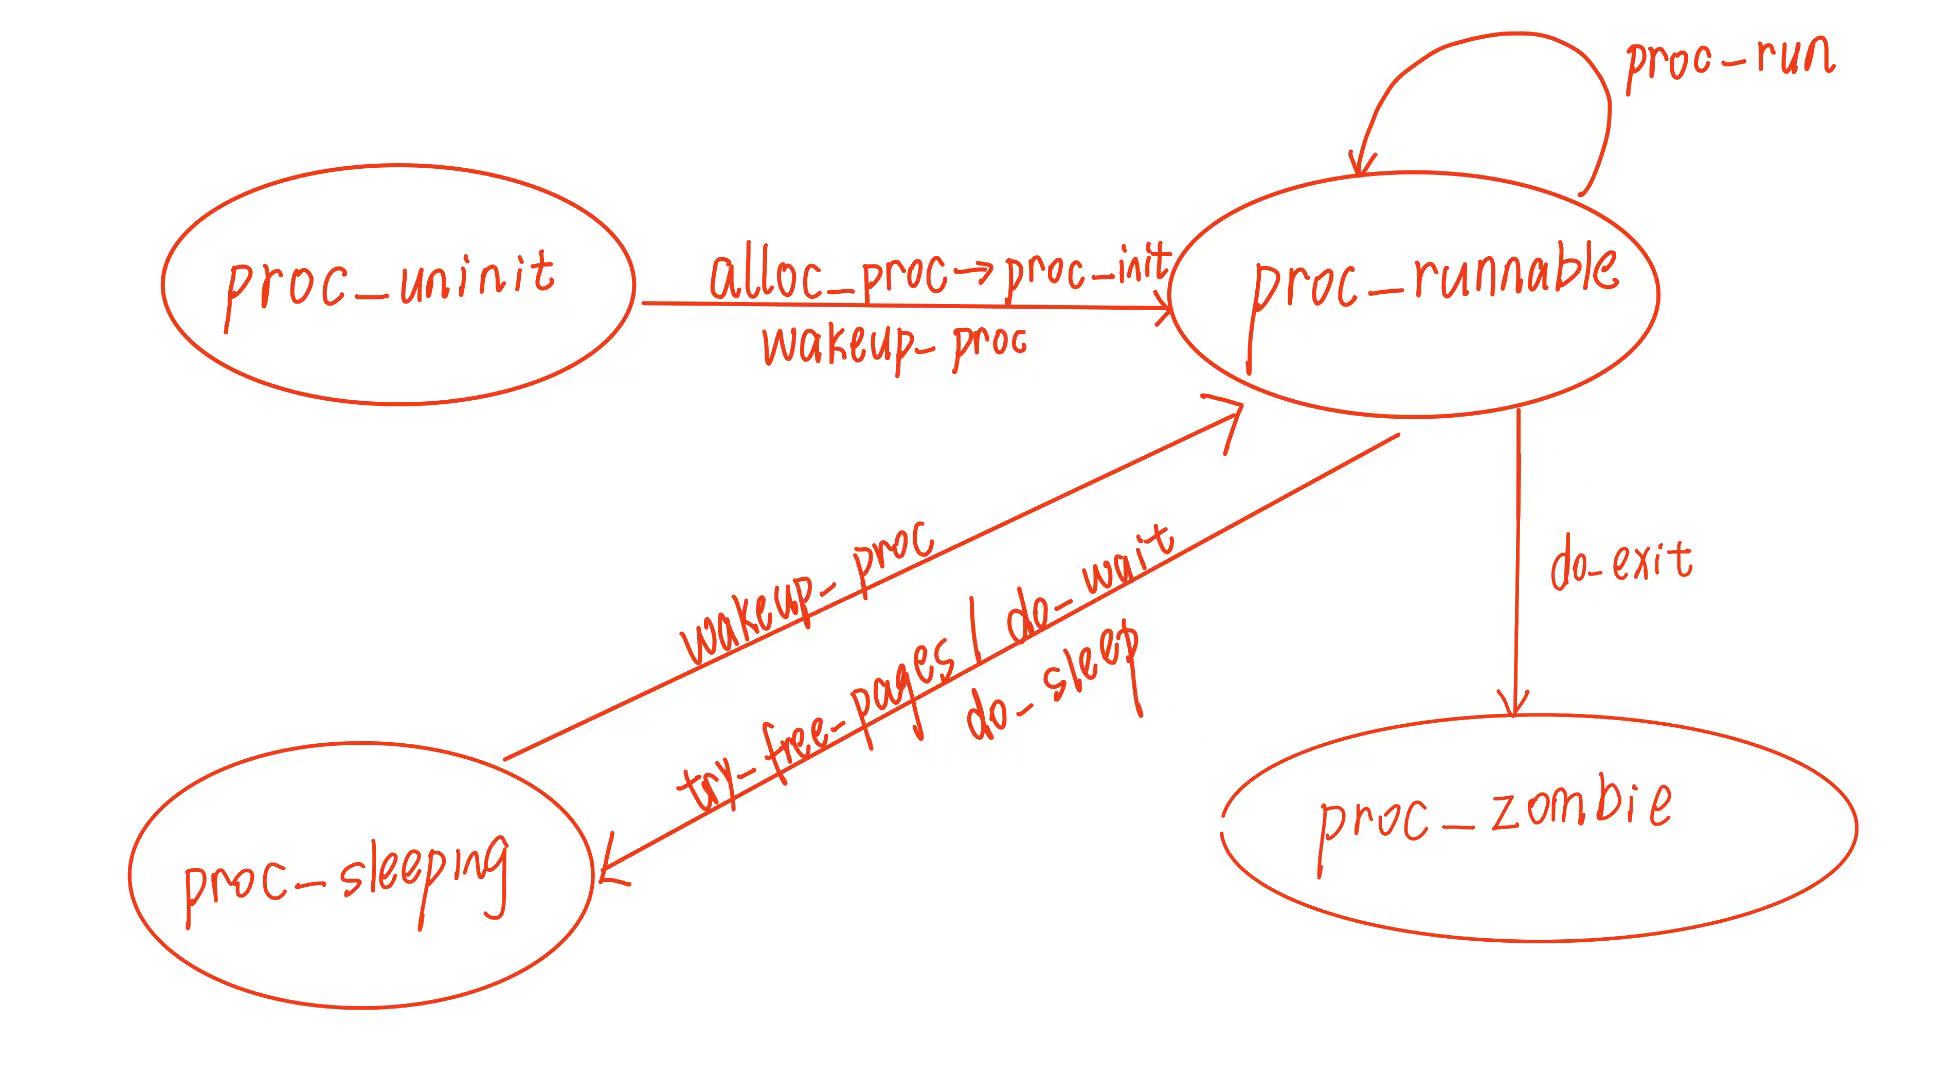 proc-run
proc_uninit
alloc_proc→proc_init
wakeup_proc
proc_runnable
do_exit
wakeup_proc
try_free_pages / do_wait
do_sleep
proc_sleeping
proc_zombie